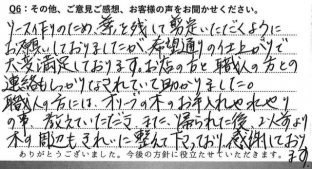 Q6：その他、ご意見ご感想、お客様の声をお聞かせください。
リース作りのため、葉を残して剪定いただくように
お願いしておりましたが、希望通りの仕上がりで
大変満足しております。お店の方と職人の方との
連絡もしっかりなされていて助かりました。
職人の方には、オリーブの木のお手入れやれやり
の事、教えていただき、また、帰られた後、以前より
木の周辺もきれいに整えて下さっており、感謝しており
ます。
ありがとうございました。今後の方針に役立たせていただきます。